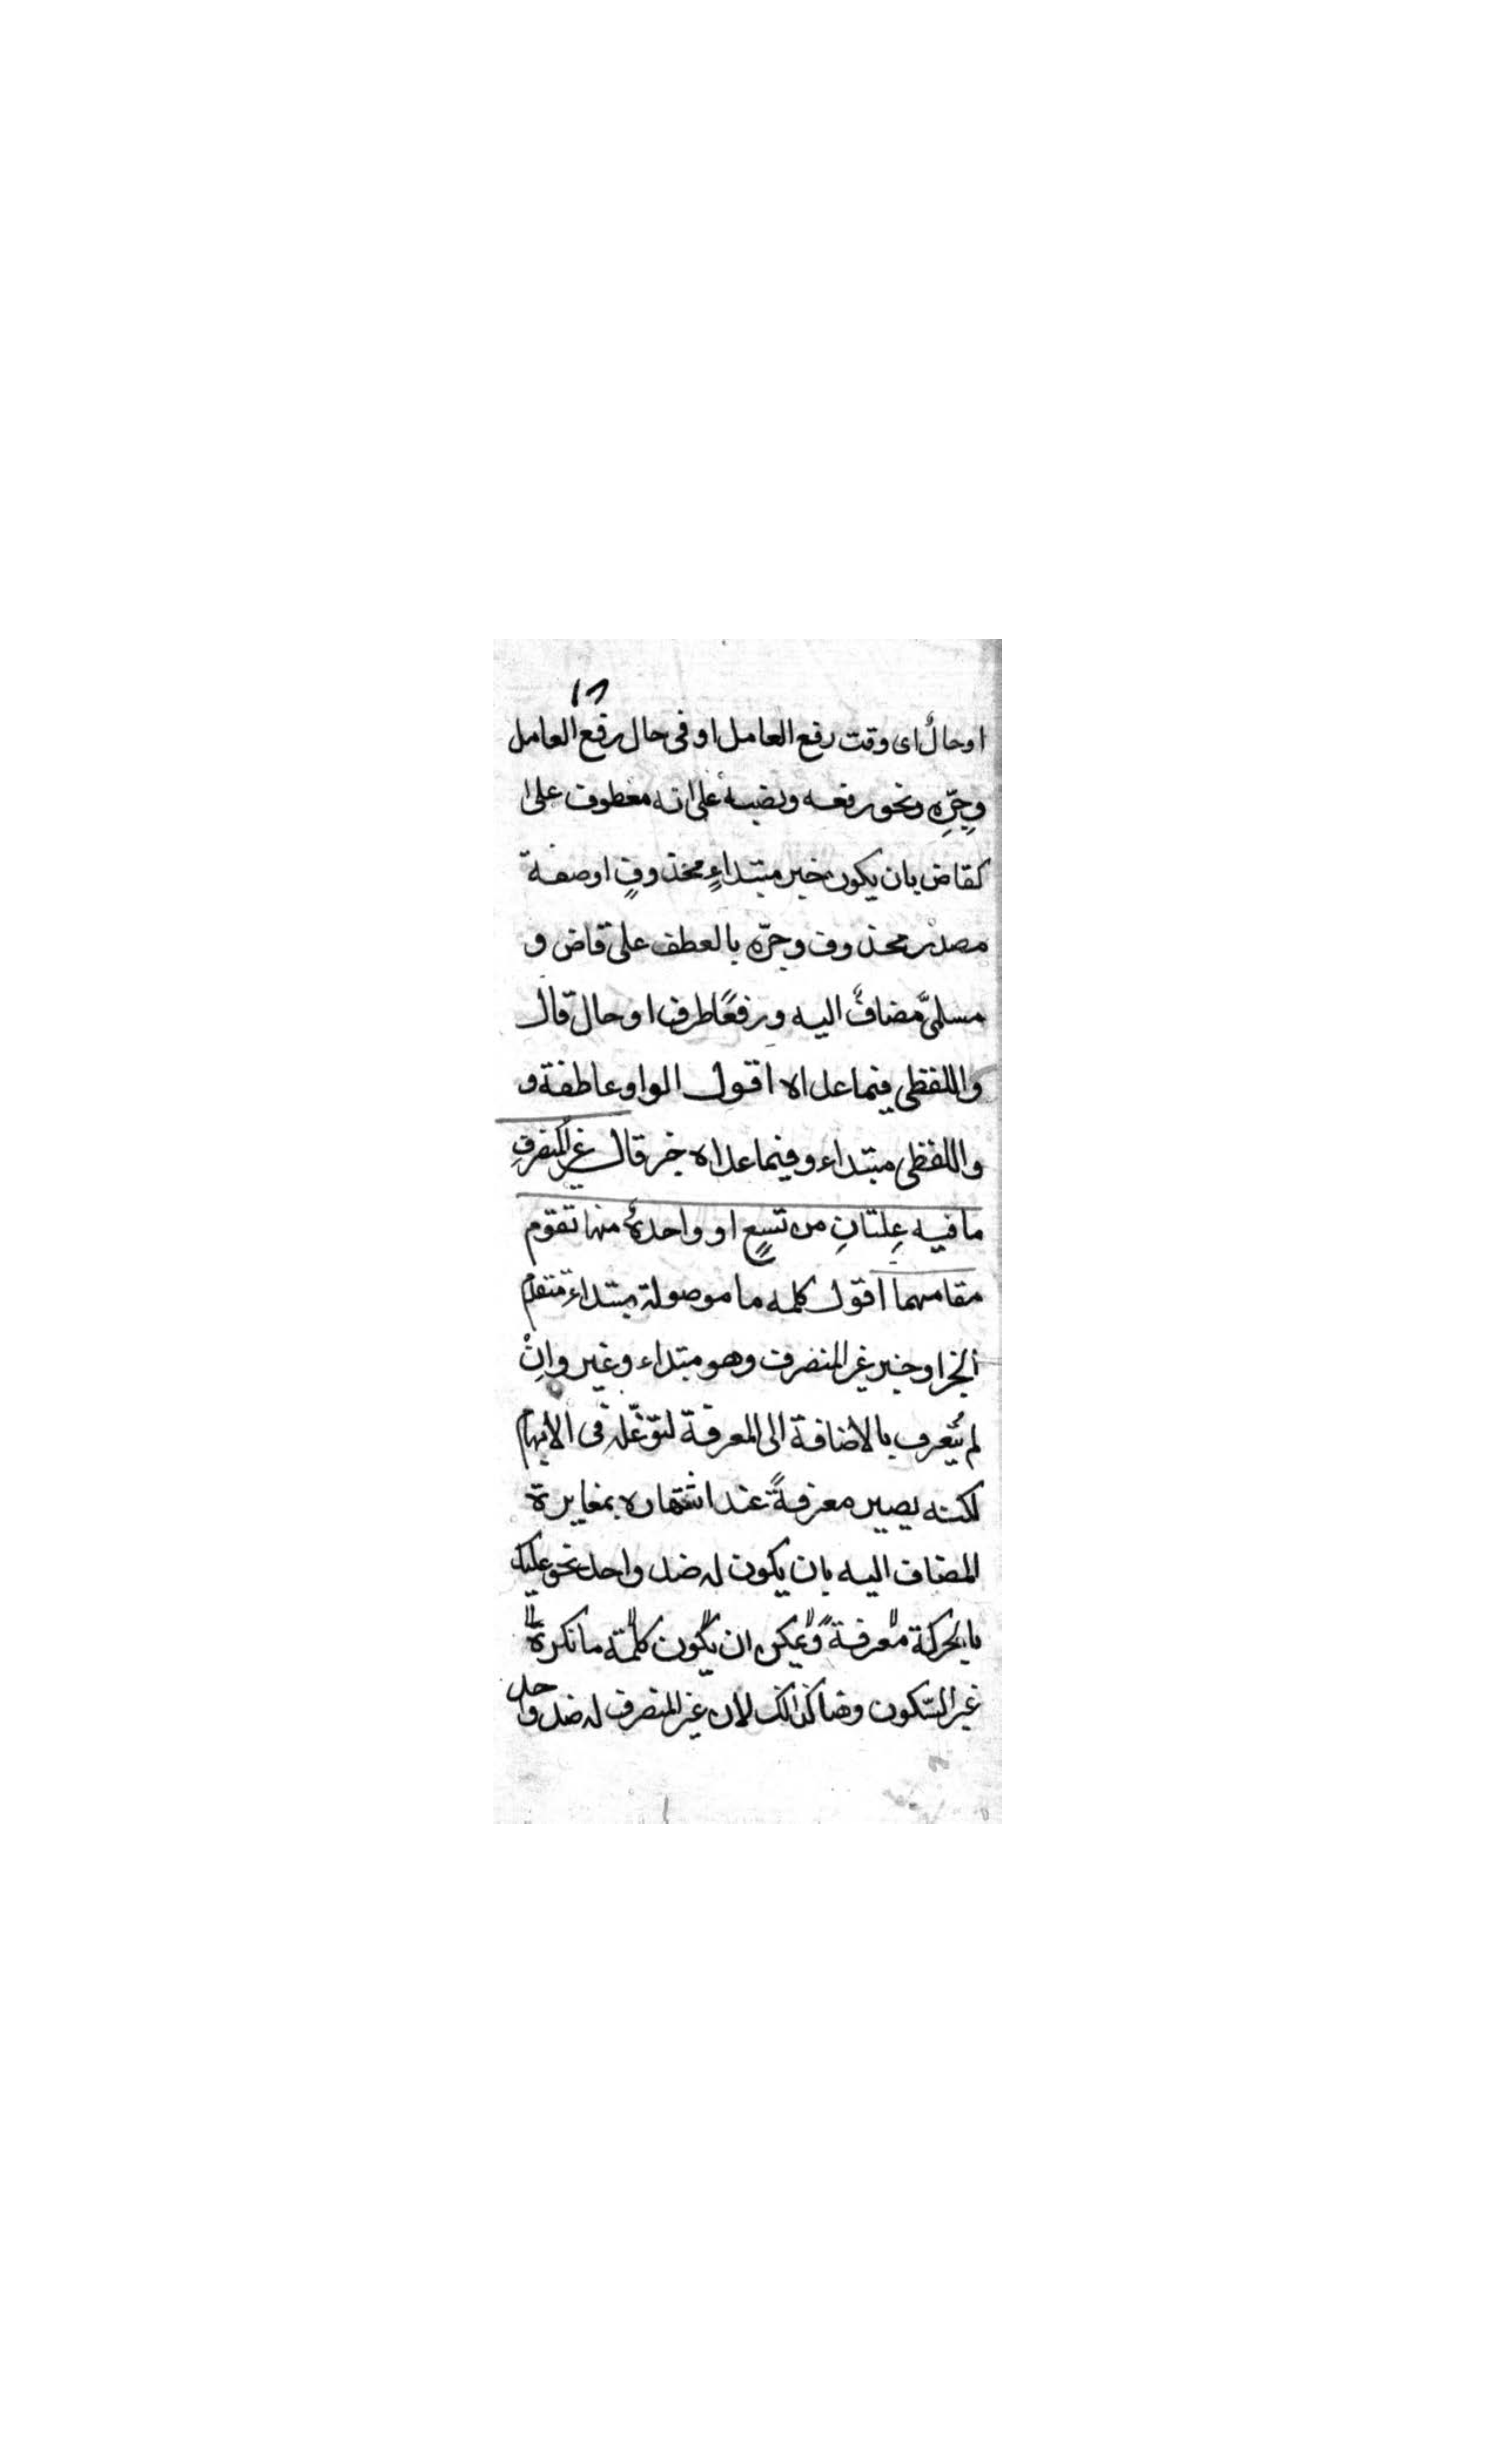 ١٢
او حالٌ اى وقت رفع العامل او فى حال رفع العامل
وجرِّه ونحو رفعه ونصبه على انه معطوف على
كقاض بان يكون خبر مبتداءٍ محذوفٍ او صفة
مصدر محذوف وجرّه بالعطف على قاض و
مسلمىَّ مضافٌ اليه ورفعًا ظرف او حال قال
واللفظى فيما عداه اقول الواو عاطفة و
واللفظى مبتداء وفيما عداه خبر قال غير المنصرفِ
ما فيه عِلتانِ من تسعٍ او واحدةٌ منها تقوم
مقامهما اقول كلمه ما موصولة مبتداء متقدم
الخبر او خبر غير المنصرف وهو مبتداء وغير وانْ
لم يتعرف بالاضافة الى المعرفة لتوغّله فى الابهام
لكنه يصير معرفةً عند اشتهاره بمغايرة
المضاف اليه بان يكون له ضد واحد نحو عليك
بالحركة معرفة ويمكن ان يكون كلمة ما نكرة
غير السّكون وهنا كذالك لان غير المنصرف له ضد واحد